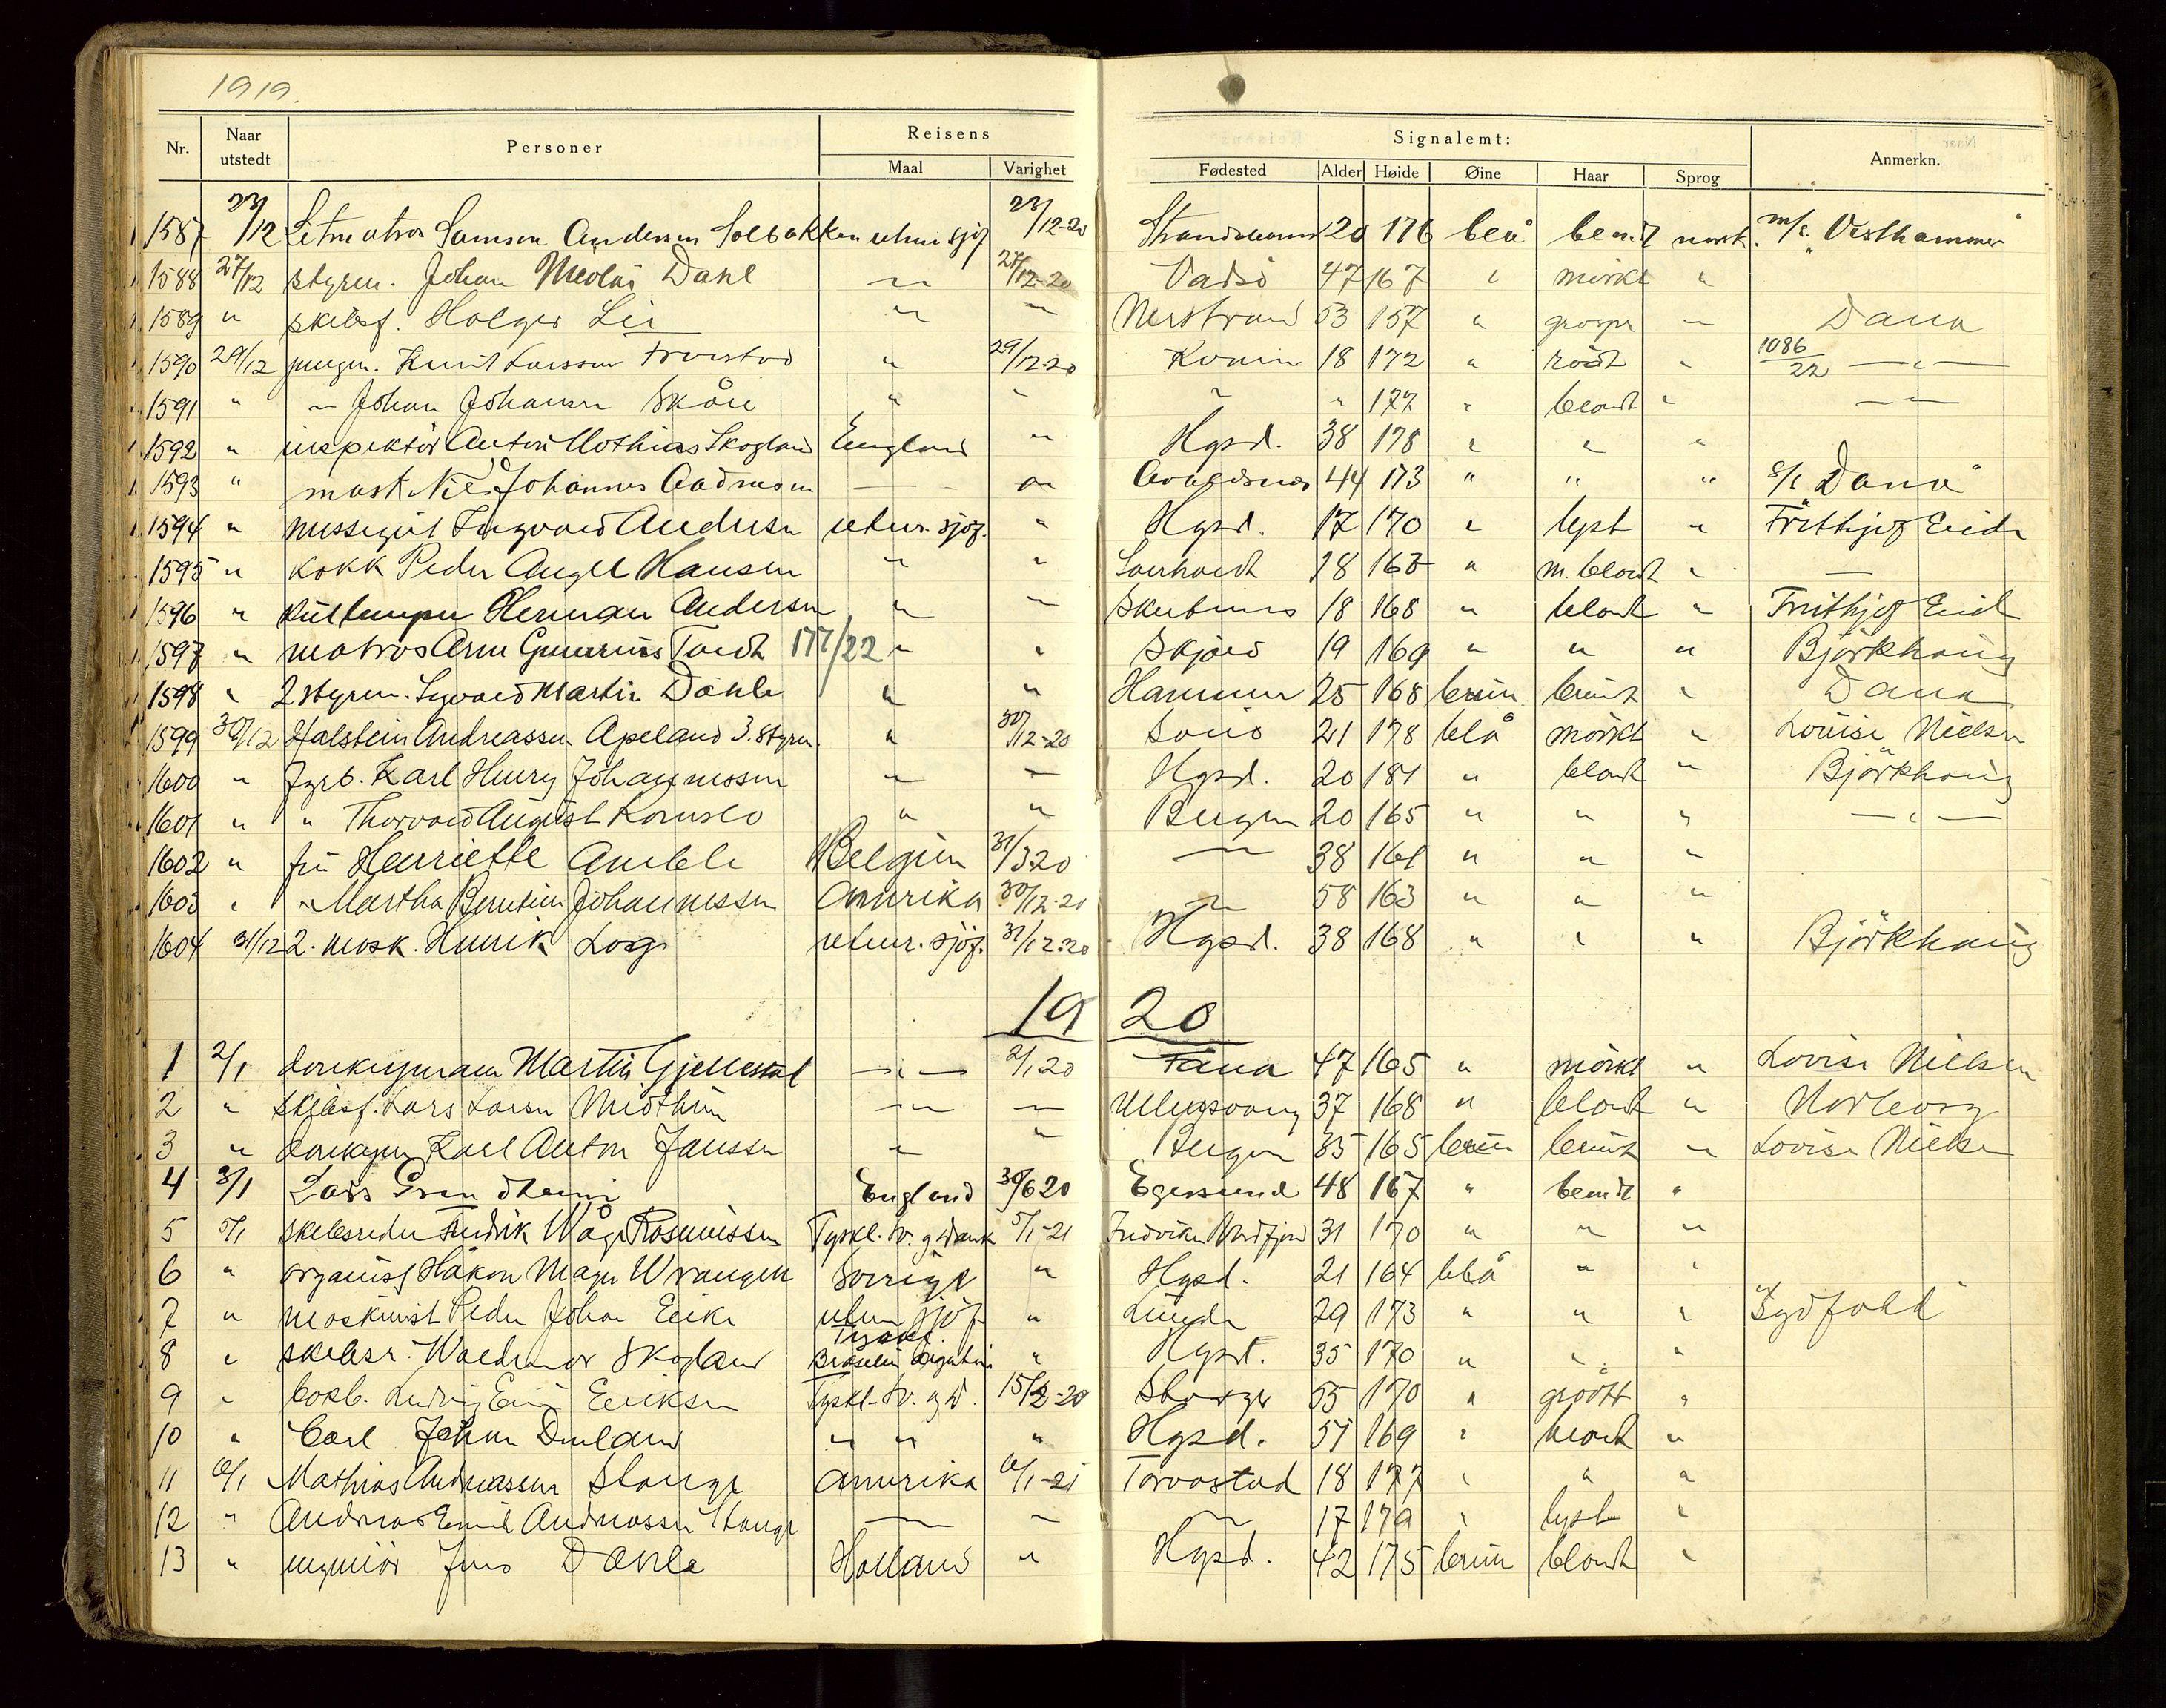 1919.
Nr. Naar utstedt Personer Reisens Maal Varighet Signalemt: Fødested Alder Høide Øine Haar Sprog Anmerkn.
1587 23/12 Letmatros Samson Andersen Solbakken uten sjöf 23/12-20 20 176 blå blondt norsk. m/s. "Vesthammer"
1588 27/12 styrm. Johan Nicolai Dahl " 27/12-20 Vadsö 47 167 " mörkt "
1589 " skibsf. Holger Lie " " Nerstrand 53 157 " " Dana
1590 29/12 jungm. Knut Larssen " 29/12-20 18 172 " rödt " 1086/22 "
1591 " " Johan Johansen Skåre " " " " 177 " blondt " "
1592 " inspektör Anton Mathias Skogland England " Hgsd. 38 178 " " "
1593 " mask. Nils Johannes Aadnesen " " Avaldsnes 44 173 " " " s/s "Dana"
1594 " messegut Ingvald Andersen uten. sjöf. " Hgsd. 17 170 " lyst " Frithjof Eide
1595 " kokk Peder Angel Hansen " " 28 " m. blondt " "
1596 " kullemper Herman Andersen " " 18 168 " blondt " Frithjof Eide
1597 " matros Arne Gunerius Tvedt 177/22 " " Skjold 19 169 " " " Björkhaug
1598 " 2 styrm. Sigvald Martin Dahle " " Hammer 25 168 brun brunt " Dana
1599 30/12 Halstein Andreassen Apeland 3. styrm. " 30/12-20 21 178 blå mörkt " Louise Nielsen
1600 " fyrb. Karl Henry Johannessen " " Hgsd. 20 181 " blondt " Björkhaug
1601 " " Thorvald August " " Bergen 20 165 " " " "
1602 " fru Henriette Belgien 31/3 20 " 38 161 " " "
1603 " " Martha Bentine Johannessen Amerika 30/12-20 " 58 163 " " "
1604 31/12 2. mask. Henrik uten. sjöf. 31/12-20 Hgsd. 38 168 " " " Björkhaug
1920
1 2/1 donkeyman Martin Gjellestad " 2/1 20 Fana 47 165 " mörkt " Lovise Nielsen
2 " skibsf. Lars Larsen Midthun " " Ullensvang 37 168 " blondt " Norborg
3 " donkeym. Karl Anton Janssen " " Bergen 35 165 brun brunt " Lovise Nielsen
4 3/1 Lars England 30/6 20 Egersund 48 167 " blondt "
5 5/1 skibsreder Fredrik Wåge Rasmussen Tyskl. Sv. og Danm 5/1-21 Indviken Nordfjord 31 170 " " "
6 " organist Håkon Magn Wrangell Sverige " Hgsd. 21 164 blå " "
7 " maskinist Peder Johan Eike uten sjöf " 29 173 " " " s/s "Sydfold"
8 " skibsr. Waldemar Skogland Tyskl. Brasilien Argentin " Hgsd. 35 170 " " "
9 " Ludvig Eriksen Tyskl. Sv. og D. 15/2-20 55 170 " gråt "
10 " Carl Johan " " " Hgsd. 51 169 " blondt "
11 6/1 Mathias Andreassen Stange Amerika 6/1-21 Torvastad 18 177 " " "
12 " Andreas Emil Andreassen Stange " " " 17 179 " lyst "
13 " ingeniör Jens Dahle Holland " Hgsd. 42 175 brun blondt "